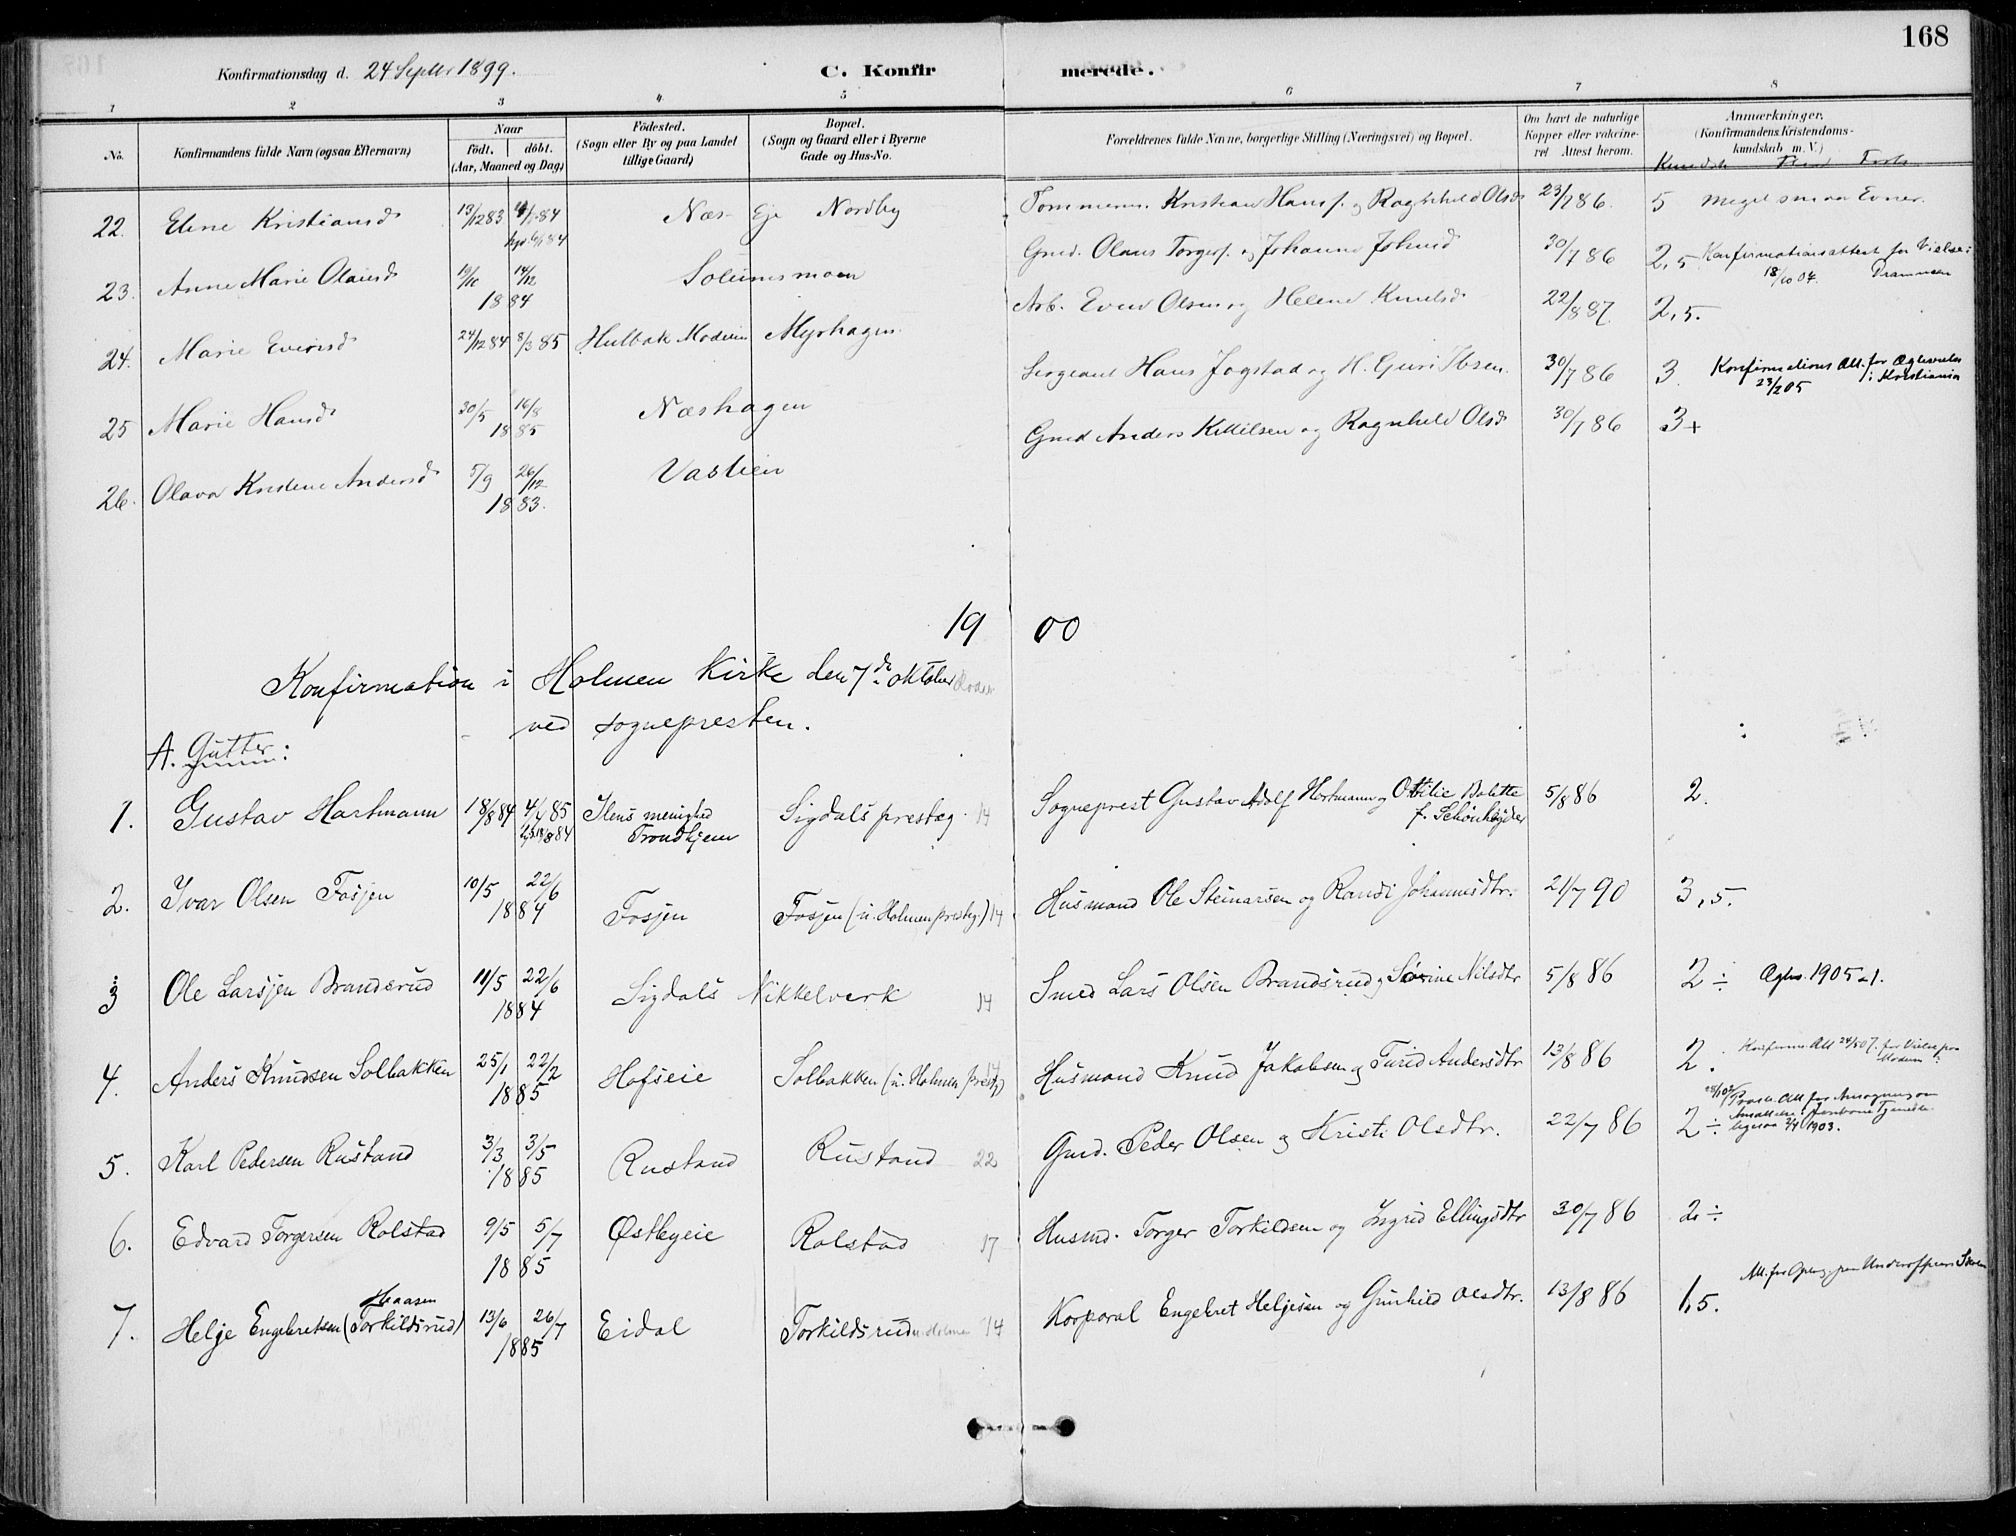 168
Konfirmationsdag d. 24 Septbr 1899. C. Konfirmerede.
1 2 3 4 5 6 7 8
No. Konfirmandens fulde Navn (ogsaa Efternavn) Naar födt. döbt. (Aar, Maaned og Dag) Födested. (Sogn eller By og paa Landet tillige Gaard) Bopæl. (Sogn og Gaard eller i Byerne Gade og Hus-No. Forældrenes fulde Navne, borgerlige Stilling (Næringsvei) og Bopæl. Om havt de naturlige Kopper eller vakcineret Attest herom. Anmærkninger. (Konfirmandens Kristendomskundskab m. V.)
22. Eline Kristiansd 13/12 83 84 Næs Eje Nordby Tømmerm. Kristian Hansf. og Ragnhild Olsd 23/7 86. 5 Meget smaa Evner.
23. Anne Marie Olausd 19/10 14/12 1884 Solumsmoen Gmd. Olaus Torgersf. og Johanne Johnsd 30/7 86 2,5 Konfirmationsattest for Vielse i Drammen 18/10 04.
24. Marie Evensd 24/12 84 8/3 85 Hulbak Modum Myrhagen. Arb. Even Olsen og Helene Knutsd 22/8 87 2,5.
25 Marie Hansd 30/5 16/8 1885 Næshagen Sergeant Hans Jogstad og H. Guri Ibsen. 30/7 86 3. Konfirmations Att. for Ægteskab i Kristiania 23/2 05
26. Olava Kristine Andersd 5/9 26/12 1883. Vaslien Gmd Anders Kittilsen og Ragnhild Olsd 30/7 86 3+
1900
Konfirmation i Holmen Kirke den 7de oktober
ved sognepresten.
A. Gutter:
1. Gustav Hartmann 18/8 84 4/4 85 Ilens menighed Trondhjem Sigdals presteg. 14 Sogneprest Gustav Adolf Hartmann og Ottilie Bolette f. Schønheyder 5/8 86 2.
2. Ivar Olsen Fosjen 10/5 22/6 1884 Fosjen Fosjen (u. Holmen presteg.) 14 Husmand Ole Steinarsen og Randi Johannesdtr. 21/7 90 3,5.
3 Ole Larsjen Brandsrud 11/5 22/6 1884 Sigdals Nikkelverk 14 Smed Lars Olsen Brandsrud og Sørine Nilsdtr 5/8 86 2÷ Ægtes. 1905 - 1.
4. Anders Knudsen Solbakken 25/1 22/2 1885 Hofseie Solbakken (u. Holmen presteg) Husmand Knud Jakobsen og Turid Andersdtr 13/8 86 2. Konfirm. Att 24/5 07. for Vielse paa Modum
5. Karl Pedersen Rustand 3/3 3/5 1885 Rustand Rustand 22 Gmd. Peder Olsen og Kristi Olsdtr. 22/7 86 2÷ Att for Ansøgning om Ansættelse i Jernbane Tjeneste. ligesaa 2/4 1903.
6. Edvard Torgersen Rolstad 9/5 5/7 1885 Østbyeie Rolstad 17 Husmd. Torger Torkildsen og Ingrid Ellingsdtr 30/7 86 2÷
7. Helje Engebretsen (Torkildsrud) Haasen 13/6 26/7 1885 Eidal Torkildsrud u. Holmen 14 Korporal Engebret Heljesen og Gunhild Olsdtr. 13/8 86 1,5. Att. for Optag. paa Underofficers Skolen